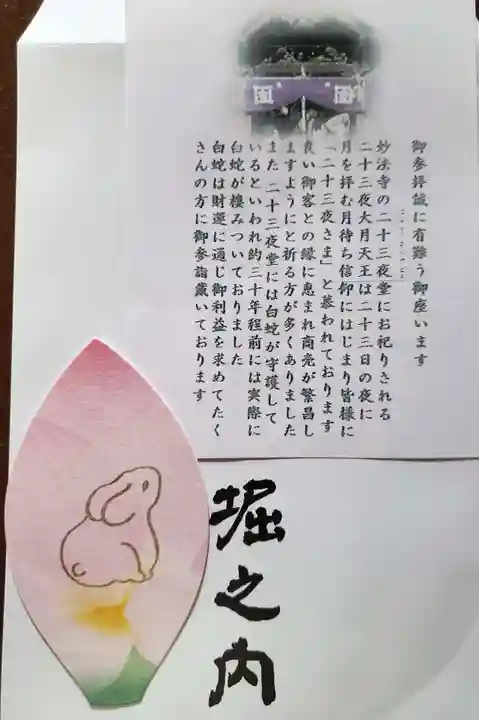 御参拝誠に有難う御座います
妙法寺の二十三夜堂にお祀りされる
二十三夜大月天王は二十三日の夜に
月を拝む月待ち信仰にはじまり皆様に
「二十三夜さま」と慕われております
良い御客との縁に恵まれ商売が繁昌し
ますようにと祈る方が多くありました
また 二十三夜堂には白蛇が守護して
いるといわれ約三十年程前には実際に
白蛇が棲みついておりました
白蛇は財運に通じ御利益を求めてたく
さんの方に御参詣戴いております
堀之内